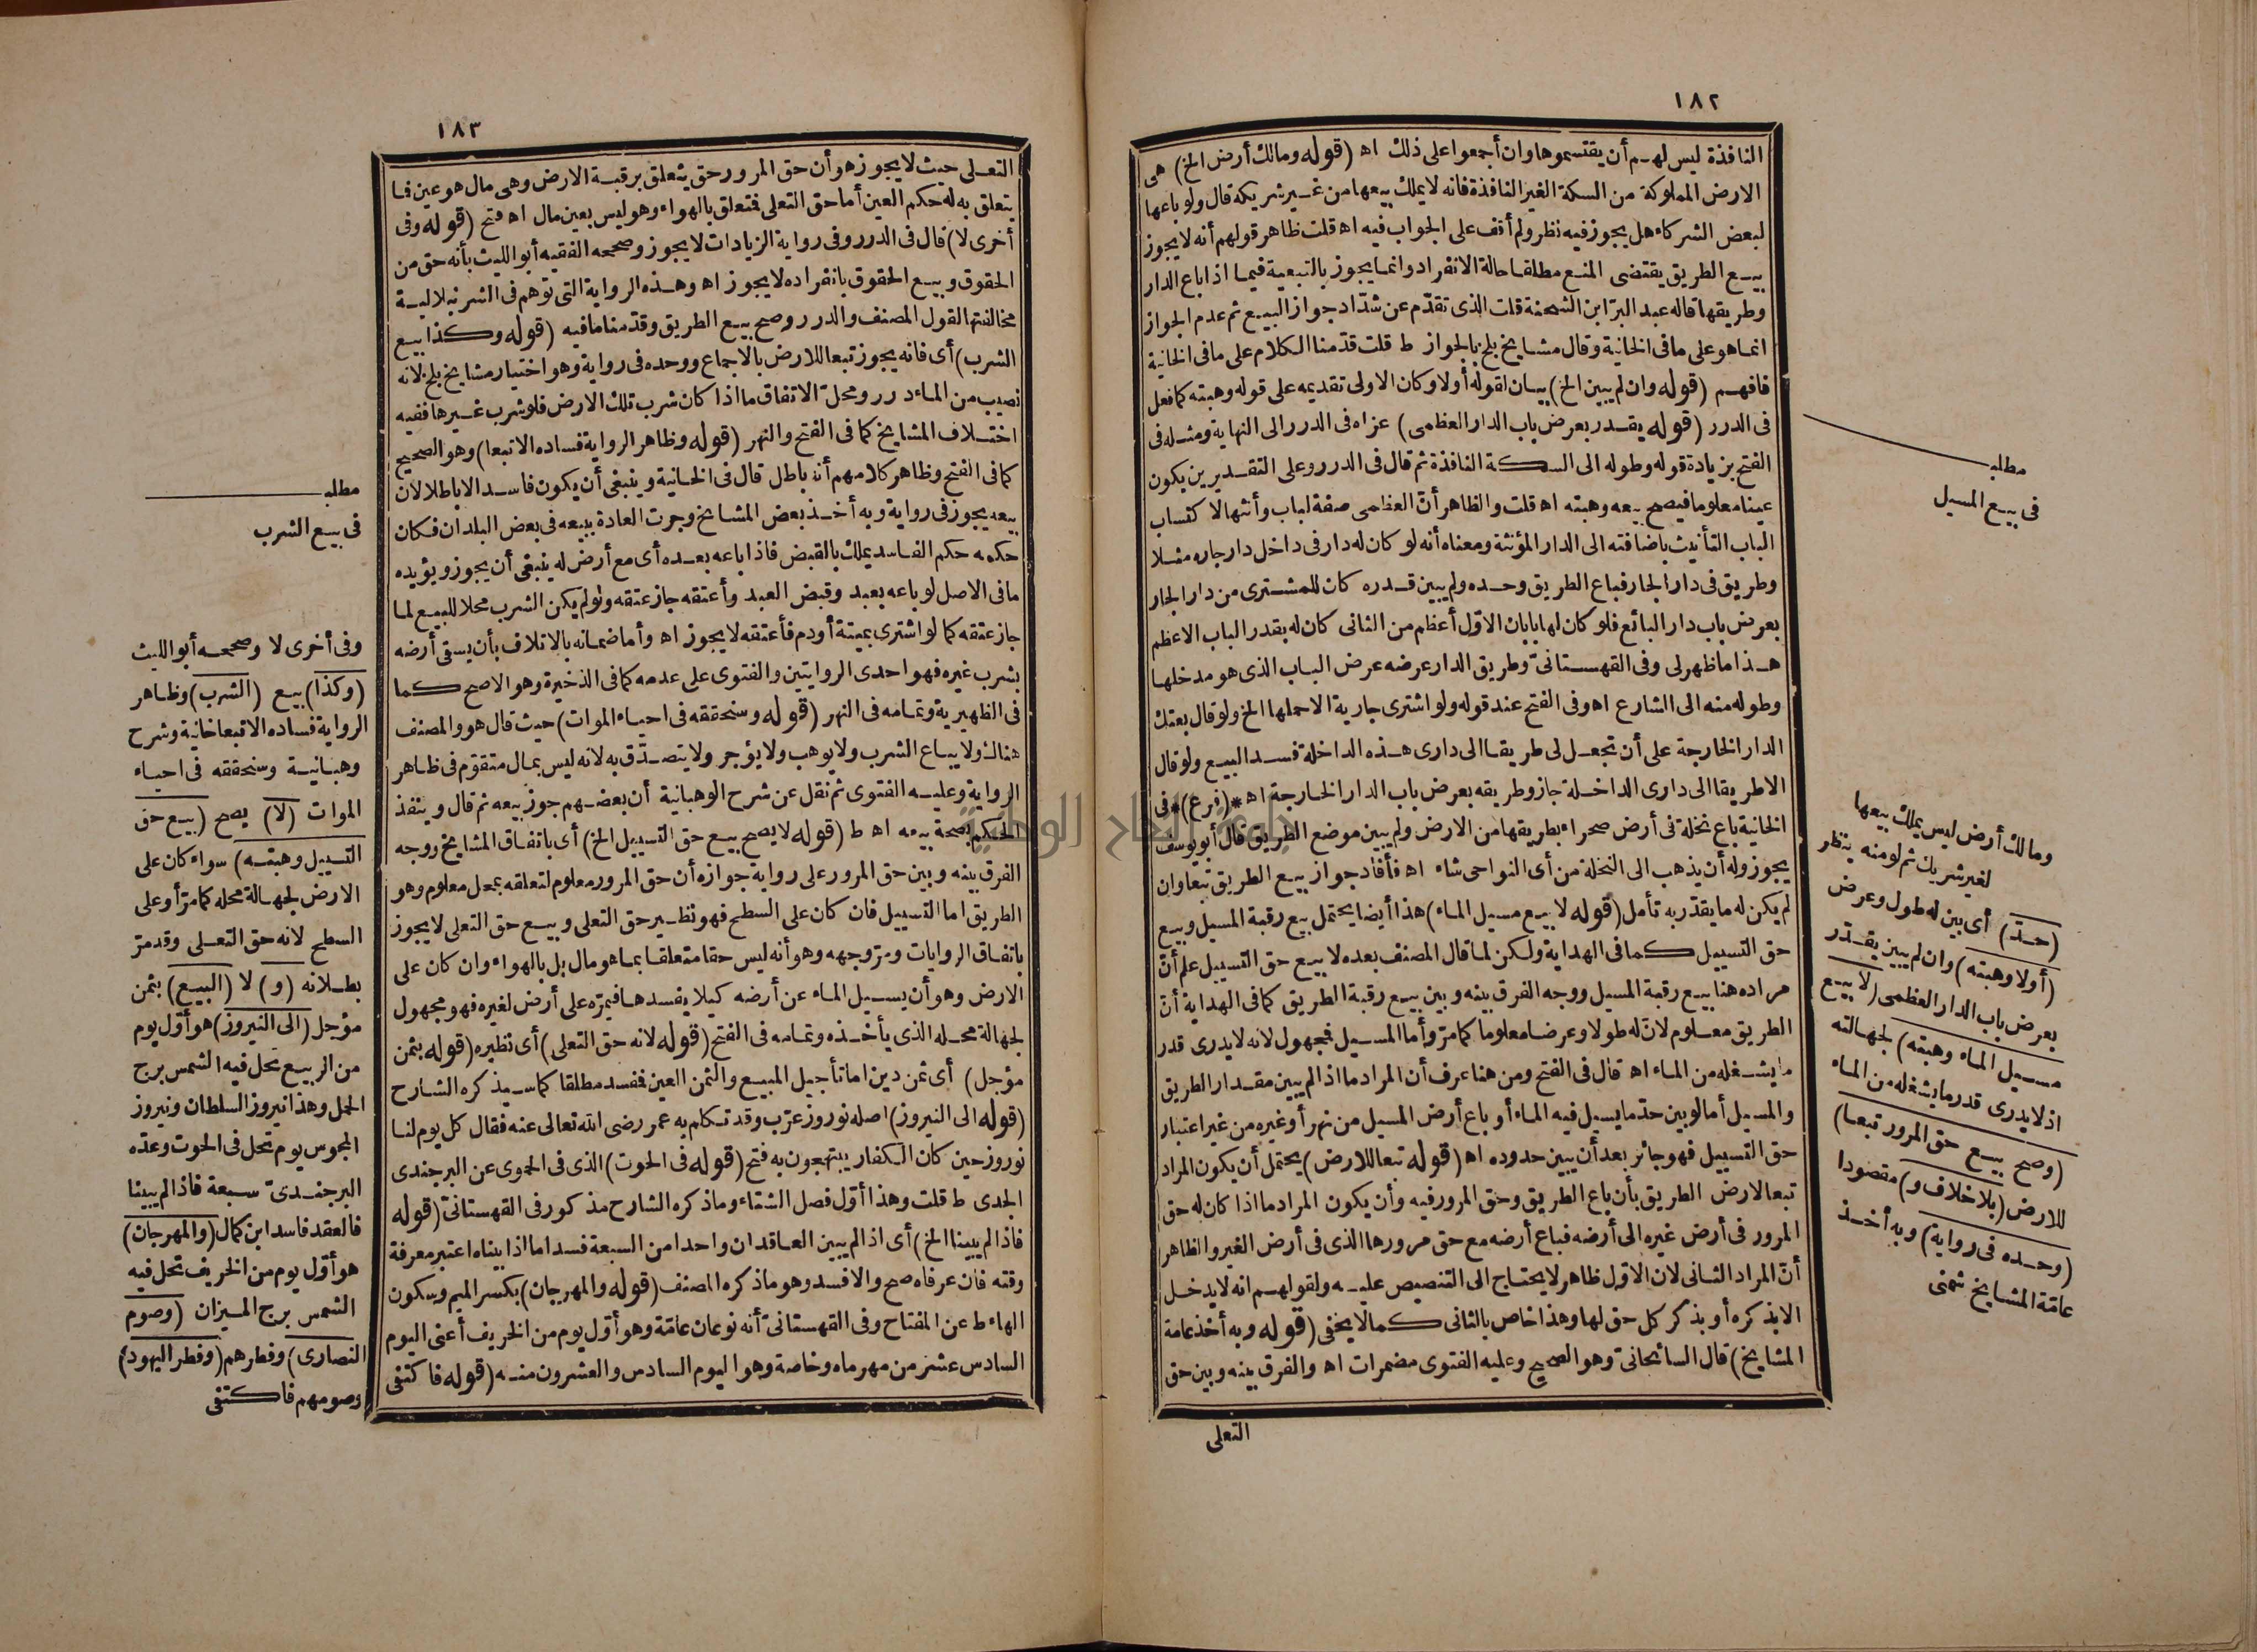 ١٨٢
النافذة ليس لهم أن يقتسموها وان أجمعوا على ذلك اه (قوله ومالك أرض الخ) هى
الارض المملوكة من السكة الغير النافذة فانه لا يملك بيعها من غير شريكه قال ولو باعها
لبعض الشركاء هل يجوز فيه نظر ولم أقف على الجواب فيه اه قلت ظاهر قولهم أنه لا يجوز
بيع الطريق يقتضى المنع مطلقا حالة الانفراد وانما يجوز بالتبعية فيما اذا باع الدار
وطريقها قاله عبد البرّ ابن الشحنة قلت الذى تقدّم عن شدّاد جواز البيع ثم عدم الجواز
انما هو على ما فى الخانية وقال مشايخ بلخ بالجواز ط قلت قدّمنا الكلام على ما فى الخانية
فافهم (قوله وان لم يبين الخ) بيان لقوله أولا وكان الاولى تقديمه على قوله وهبته كما فعل
فى الدرر (قوله يقدر بعرض باب الدار العظمى) عزاه فى الدرر الى النهاية ومثله فى
الفتح بزيادة قوله وطوله الى السكة النافذة ثم قال فى الدرر وعلى التقديرين يكون
عينا معلوما فيصح بيعه وهبته اه قلت والظاهر أنّ العظمى صفة لباب وأنثها لاكتساب
الباب التأنيث باضافته الى الدار المؤنثة ومعناه أنه لو كان له دار فى داخل دار جاره مثلا
وطريق فى دار الجار فباع الطريق وحده ولم يبين قدره كان للمشترى من دار الجار
بعرض باب دار البائع فلو كان لها بابان الاوّل أعظم من الثانى كان له بقدر الباب الاعظم
هذا ما ظهر لى وفى القهستانىّ وطريق الدار عرضه عرض الباب الذى هو مدخلها
وطوله منه الى الشارع اه وفى الفتح عند قوله ولو اشترى جارية الا حملها الخ ولو قال بعتك
الدار الخارجة على أن تجعل لى طريقا الى دارى هذه الداخلة فسد البيع ولو قال
الا طريقا الى دارى الداخلة جاز وطريقه بعرض باب الدار الخارجة اه *(فرع)* فى
الخانية باع نخلة فى أرض صحراء بطريقها من الارض ولم يبين موضع الطريق قال أبو يوسف
يجوز وله أن يذهب الى النخلة من أى النواحى شاء اه فأفاد جواز بيع الطريق تبعا وان
لم يكن له ما يقدّر به تأمل (قوله لا بيع مسيل الماء) هذا أيضا يحتمل بيع رقبة المسيل وبيع
حق التسييل كما فى الهداية ولكن لما قال المصنف بعده لا بيع حق التسييل علم أنّ
مراده هنا بيع رقبة المسيل ووجه الفرق بينه وبين بيع رقبة الطريق كما فى الهداية أنّ
الطريق معلوم لانّ له طولا وعرضا معلوما كما مرّ وأما المسيل فمجهول لانه لا يدرى قدر
ما يشغله من الماء اه قال فى الفتح ومن هنا عرف أن المراد ما اذا لم يبين مقدار الطريق
والمسيل أما لو بين حدّ ما يسيل فيه الماء أو باع أرض المسيل من نهر أو غيره من غير اعتبار
حق التسييل فهو جائز بعد أن يبين حدوده اه (قوله تبعا للارض) يحتمل أن يكون المراد
تبعا لارض الطريق بأن باع الطريق وحق المرور فيه وأن يكون المراد ما اذا كان له حق
المرور فى أرض غيره الى أرضه فباع أرضه مع حق مرورها الذى فى أرض الغير والظاهر
أنّ المراد الثانى لان الاوّل ظاهر لا يحتاج الى التنصيص عليه ولقولهم انه لا يدخل
الا بذكره أو بذكر كل حق لها وهذا خاص بالثانى كما لا يخفى (قوله وبه أخذ عامة
المشايخ) قال السائحانىّ وهو الصحيح وعليه الفتوى مضمرات اه والفرق بينه وبين حق
التعلى
مطلب
فى بيع المسيل
ومالك أرض ليس يملك بيعها
لغير شريك ثم لو منه ينظر
(حدّ) أى بين له طول وعرض
(أولا وهبته) وان لم يبين يقدّر
بعرض باب الدار العظمى (لا بيع
مسيل الماء وهبته) لجهالته
اذ لا يدرى قدر ما يشغله من الماء
(وصح بيع حق المرور تبعا)
للارض (بلا خلاف و) مقصودا
(وحده فى رواية) وبه أخذ
عامّة المشايخ شمنى
١٨٣
التعلى حيث لا يجوز هو أن حق المرور حق يتعلق برقبة الارض وهى مال هو عين فما
يتعلق به له حكم العين أما حق التعلى فمتعلق بالهواء وهو ليس بعين مال اه فتح (قوله وفى
أخرى لا) قال فى الدرر وفى رواية الزيادات لا يجوز وصححه الفقيه أبو الليث بأنه حق من
الحقوق وبيع الحقوق بانفراده لا يجوز اه وهذه الرواية التى توهم فى الشرنبلالية
مخالفتها لقول المصنف والدرر وصح بيع الطريق وقدّمنا ما فيه (قوله وكذا بيع
الشرب) أى فانه يجوز تبعا للارض بالاجماع ووحده فى رواية وهو اختيار مشايخ بلخ لانه
نصيب من الماء درر ومحلّ الاتفاق ما اذا كان شرب تلك الارض فلو شرب غيرها ففيه
اختلاف المشايخ كما فى الفتح والنهر (قوله وظاهر الرواية فساده الا تبعا) وهو الصحيح
كما فى الفتح وظاهر كلامهم أنه باطل قال فى الخانية وينبغى أن يكون فاسدا لا باطلا لان
بيعه يجوز فى رواية وبه أخذ بعض المشايخ وجرت العادة ببيعه فى بعض البلدان فكان
حكمه حكم الفاسد يملك بالقبض فاذا باعه بعده أى مع أرض له ينبغى أن يجوز ويؤيده
ما فى الاصل لو باعه بعبد وقبض العبد وأعتقه جاز عتقه ولو لم يكن الشرب محلا للبيع لما
جاز عتقه كما لو اشترى بميتة أو دم فأعتقه لا يجوز اه وأما ضمانه بالاتلاف بأن يسقى أرضه
بشرب غيره فهو احدى الروايتين والفتوى على عدمه كما فى الذخيرة وهو الاصح كما
فى الظهيرية وتمامه فى النهر (قوله وسنحققه فى احياء الموات) حيث قال هو والمصنف
هناك ولا يباع الشرب ولا يوهب ولا يؤجر ولا يتصدّق به لانه ليس بمال متقوّم فى ظاهر
الرواية وعليه الفتوى ثم نقل عن شرح الوهبانية أن بعضهم جوّز بيعه ثم قال وينفذ
الحكم بصحة بيعه اه ط (قوله لا يصح بيع حق التسييل الخ) أى باتفاق المشايخ ووجه
الفرق بينه وبين حق المرور على رواية جوازه أن حق المرور معلوم لتعلقه بمحل معلوم وهو
الطريق اما التسييل فان كان على السطح فهو نظير حق التعلى وبيع حق التعلى لا يجوز
باتفاق الروايات ومرّ وجهه وهو أنه ليس حقا متعلقا بما هو مال بل بالهواء وان كان على
الارض وهو أن يسيل الماء عن أرضه كيلا يفسدها فيمرّه على أرض لغيره فهو مجهول
لجهالة محله الذى يأخذه وتمامه فى الفتح (قوله لانه حق التعلى) أى نظيره (قوله بثمن
مؤجل) أى ثمن دين اما تأجيل المبيع والثمن العين ففسد مطلقا كما سيذكره الشارح
(قوله الى النيروز) اصله نوروز عرّب وقد تكلم به عمر رضى الله تعالى عنه فقال كل يوم لنا
نوروز حين كان الكفار يبتهجون به فتح (قوله فى الحوت) الذى فى الحموى عن البرجندى
الجدى ط قلت وهذا أوّل فصل الشتاء وما ذكره الشارح مذكور فى القهستانىّ (قوله
فاذا لم يبينا الخ) أى اذا لم يبين العاقدان واحدا من السبعة فسد اما اذا بيناه اعتبر معرفة
وقته فان عرفاه صح والا فسد وهو ما ذكره المصنف (قوله والمهرجان) بكسر الميم وسكون
الهاء ط عن المفتاح وفى القهستانىّ أنه نوعان عامّة وهو أوّل يوم من الخريف أعنى اليوم
السادس عشر من مهرماه وخاصة وهو اليوم السادس والعشرون منه (قوله فاكتفى
مطلب
فى بيع الشرب
وفى أخرى لا وصححه أبو الليث
(وكذا) بيع (الشرب) وظاهر
الرواية فساده الا تبعا خانية وشرح
وهبانية وسنحققه فى احياء
الموات (لا) يصح (بيع حق
التسييل وهبته) سواء كان على
الارض لجهالة محله كما مرّ أو على
السطح لانه حق التعلى وقد مرّ
بطلانه (و) لا (البيع) بثمن
مؤجل (الى النيروز) هو أوّل يوم
من الربيع تحل فيه الشمس برج
الحمل وهذا نيروز السلطان ونيروز
المجوس يوم تحل فى الحوت وعدّه
البرجندىّ سبعة فاذا لم يبينا
فالعقد فاسد ابن كمال (والمهرجان)
هو أوّل يوم من الخريف تحل فيه
الشمس برج الميزان (وصوم
النصارى) وفطرهم (وفطر اليهود)
وصومهم فاكتفى